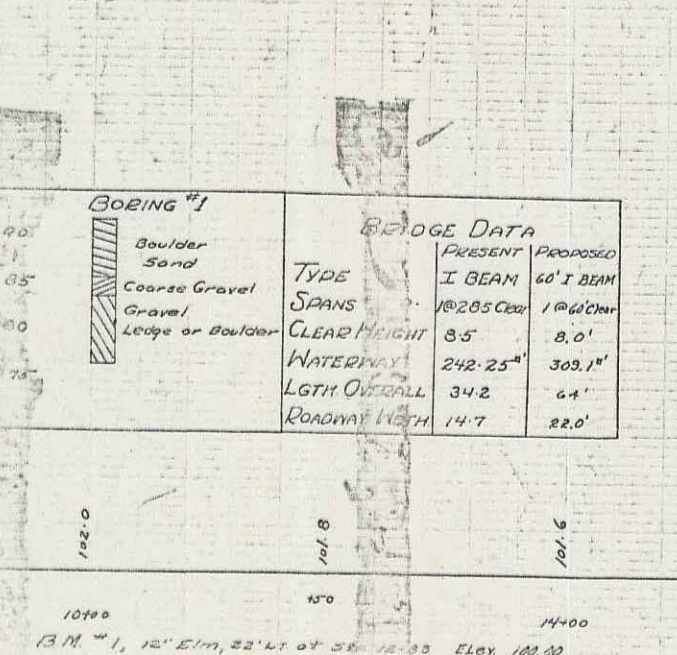 BORING #1
90
85
80
75
Boulder
Sand
Coarse Gravel
Gravel
Ledge or Boulder
BRIDGE DATA
PRESENT PROPOSED
TYPE I BEAM 60' I BEAM
SPANS 1@28.5 Clear 1@60' Clear
CLEAR HEIGHT 8.5 8.0'
WATERWAY 242.25#' 309.1#'
LGTH OVERALL 34.2 64'
ROADWAY WDTH 14.7 22.0'
102.0
101.8
101.6
10+00
+50
14+00
B.M. #1, 12" Elm, 22' LT of Elev. 100.00